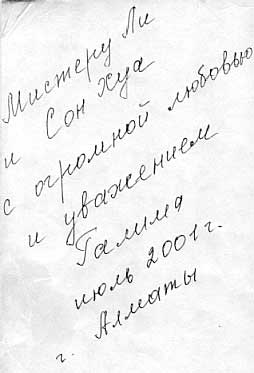 Мистеру Ли
и Сон Хуа
с огромной любовью
и уважением
Галима
июль 2001 г.
г. Алматы